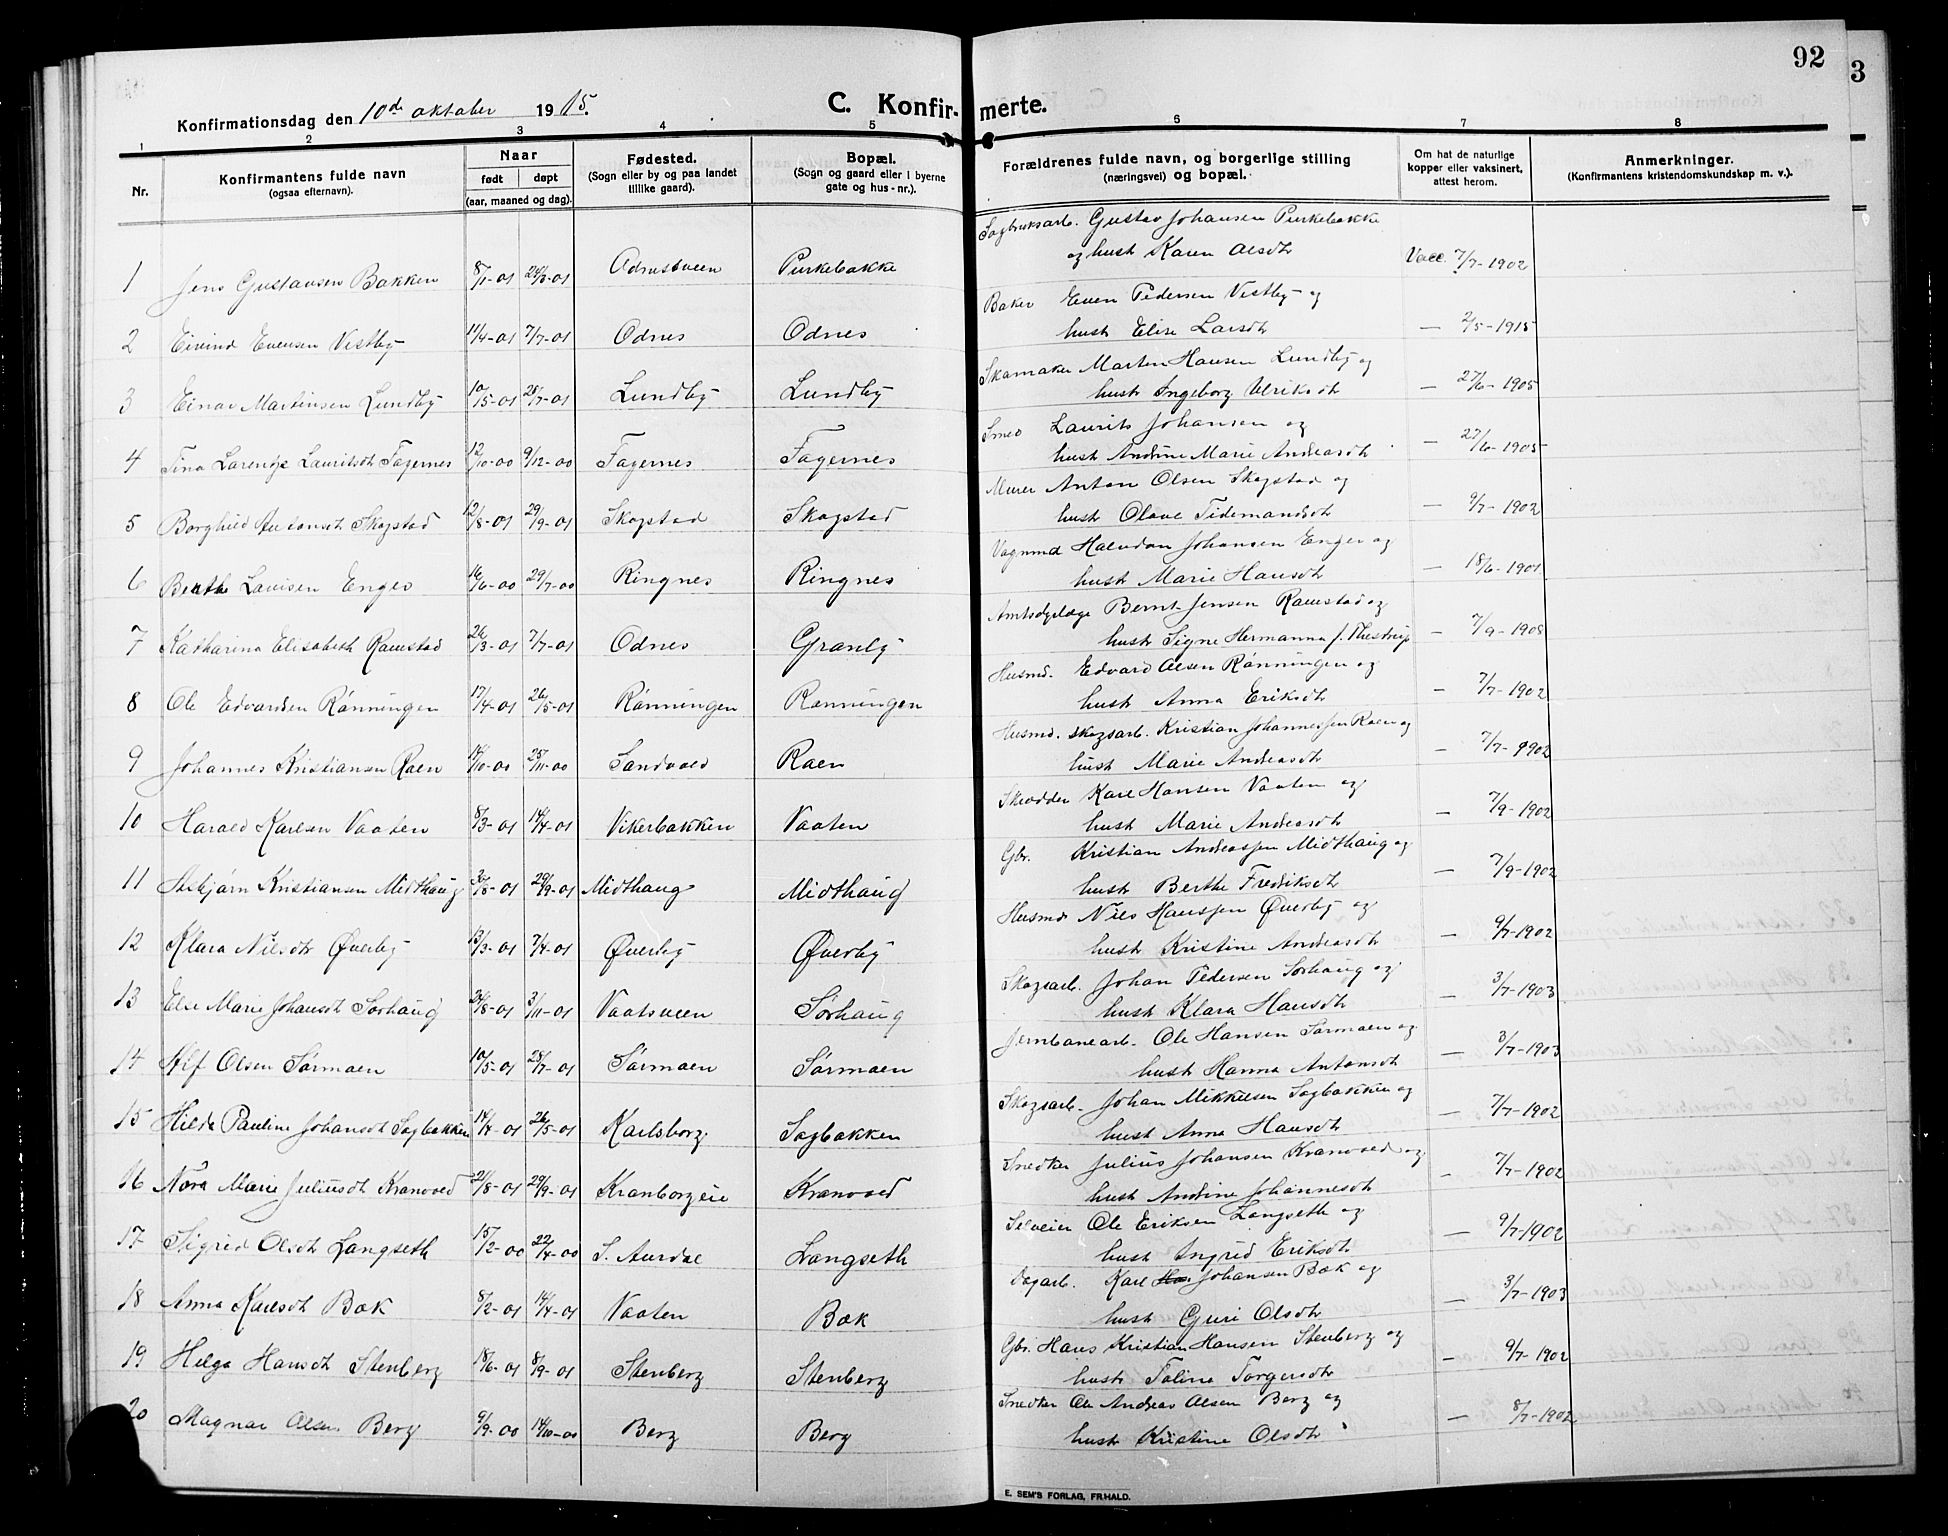 92
3
Konfirmationsdag den 10de oktober 1915.
C. Konfirmerte.
1 2 3 4 5 6 7 8
Nr.
Konfirmantens fulde navn
(ogsaa efternavn).
Naar
født døpt
(aar, maaned og dag).
Fødested.
(Sogn eller by og paa landet
tillike gaard).
Bopæl.
(Sogn og gaard eller i byerne
gate og hus-nr.).
Forældrenes fulde navn, og borgerlige stilling
(næringsvei) og bopæl.
Om hat de naturlige
kopper eller vaksinert,
attest herom.
Anmerkninger.
(Konfirmantens kristendomskundskap m. v.).
Sagbruksarb. Gustav Johansen Purkebakke
1 Jens Gustavsen Bakken 8/1-01 24/3-01 Odnessveen Purkebakke og hust Karen Olsdt Vacc. 7/7-1902
Baker Even Pedersen Vestby og
2 Eivind Evensen Vestby 11/4-01 7/7-01 Odnes Odnes hust Elise Larsdt — 2/5-1915
Skomaker Martin Hansen Lundby og
3 Einar Martinsen Lundby 10/5-01 28/7-01 Lundby Lundby hust Ingeborg Ulriksdt — 27/6-1905
Smed Laurits Johansen og
4 Tina Lorense Lauritsdt Fagernes 12/10-00 9/12-00 Fagernes Fagernes hust Andrine Marie Andreasdt — 27/6-1905
Murer Anton Olsen Skogstad og
5 Borghild Antonsdt Skogstad 12/8-01 29/9-01 Skogstad Skogstad hust Olave Tidemandsdt — 9/7-1902
Vognmd Halvdan Johansen Enger og
6 Berthe Lovisen Enger 16/6-00 29/7-00 Ringnes Ringnes hust Marie Hansdt — 18/6-1901
Bernt Jensen Ramstad og
7 Katharina Elisabeth Ramstad 26/3-01 7/7-01 Odnes Granly hust Signe Hermanna f. Thestrup — 7/9-1908
Husmd. Edvard Olsen Rønningen og
8 Ole Edvardsen Rønningen 17/4-01 26/5-01 Rønningen Rønningen hust Anna Eriksdt — 7/7-1902
Husmd. skogsarb. Kristian Johannessen Roen og
9 Johannes Kristiansen Roen 14/10-00 25/11-00 Sandvold Roen hust Marie Andreasdt — 7/7-1902
Skrædder Karl Hansen Vaaten og
10 Harald Karlsen Vaaten 8/3-01 14/4-01 Vikerbakken Vaaten hust Marie Andreasdt — 7/9-1902
Gbr. Kristian Andreassen Midthaug og
11 Asbjørn Kristiansen Midthaug 30/8-01 29/9-01 Midthaug Midthaug hust Berthe Fredriksdt — 7/9-1902
Husmd Nils Hanssen Øverby og
12 Klara Nilsdt Øverby 13/3-01 7/4-01 Øverby Øverby hust Kristine Andreasdt — 9/7-1902
Skogsarb. Johan Pedersen Sørhaug og
13 Else Marie Johansdt Sørhaug 24/8-01 3/11-01 Vaatsveen Sørhaug hust Klara Hansdt — 3/7-1903
Jernbanearb. Ole Hansen Sørmoen og
14 Alf Olsen Sørmoen 10/5-01 28/7-01 Sørmoen Sørmoen hust Hanna Antonsdt — 3/7-1903
Skogsarb. Johan Mikkelsen Sagbakken og
15 Hilda Pauline Johansdt Sagbakken 14/4-01 26/5-01 Karlsborg Sagbakken hust Anna Hansdt — 7/7-1902
Snedker Julius Johansen Kranvold og
16 Nora Marie Juliusdt Kranvold 21/8-01 29/9-01 Kranborgeie Kranvold hust Andrine Johannesdt — 7/7-1902
Selveier Ole Eriksen Langseth og
17 Sigrid Olsdt Langseth 15/2-00 22/4-00 S. Aurdal Langseth hust Ingrid Eriksdt — 9/7-1902
Dagarb. Karl Johansen Bæk og
18 Anna Karlsdt Bæk 8/2-01 14/4-01 Vaaten Bæk hust Guri Olsdt — 3/7-1903
Gbr. Hans Kristian Hansen Stenberg og
19 Helga Hansdt Stenberg 18/6-01 8/9-01 Stenberg Stenberg hust Toline Torgersdt — 9/7-1902
Snedker Ole Andreas Olsen Berg og
20 Magnar Olsen Berg 9/9-00 14/10-00 Berg Berg hust Kristine Olsdt — 8/7-1902
E. SEM'S FORLAG, FR.HALD.